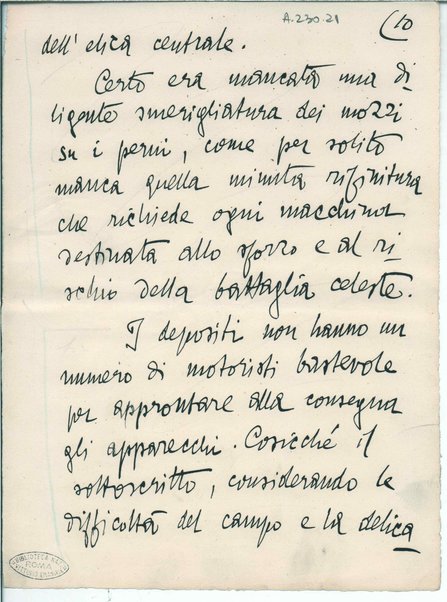 A.230.21
10
dell'elica centrale.
Certo era mancata una di-
ligente smerigliatura dei mozzi
su i perni, come per solito
manca quella minuta rifinitura
che richiede ogni macchina
destinata allo sforzo e al ri-
schio della battaglia celeste.
I depositi non hanno un
numero di motoristi bastevole
per approntare alla consegna
gli apparecchi. Cosicché il
sottoscritto, considerando le
difficoltà del campo e la delica
BIBLIOTECA NAZ.
ROMA
VITTORIO EMANUELE